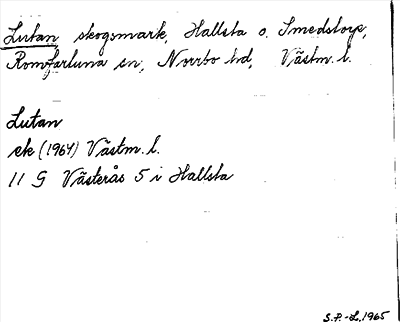 Lutan skogsmark, Hallsta o. Smedstorp,
Romfartuna sn, Norrbo hd, Västm. l.
Lutan
ek (1964) Västm. l.
11 G Västerås 5 i Hallsta
S.P.-L. 1965